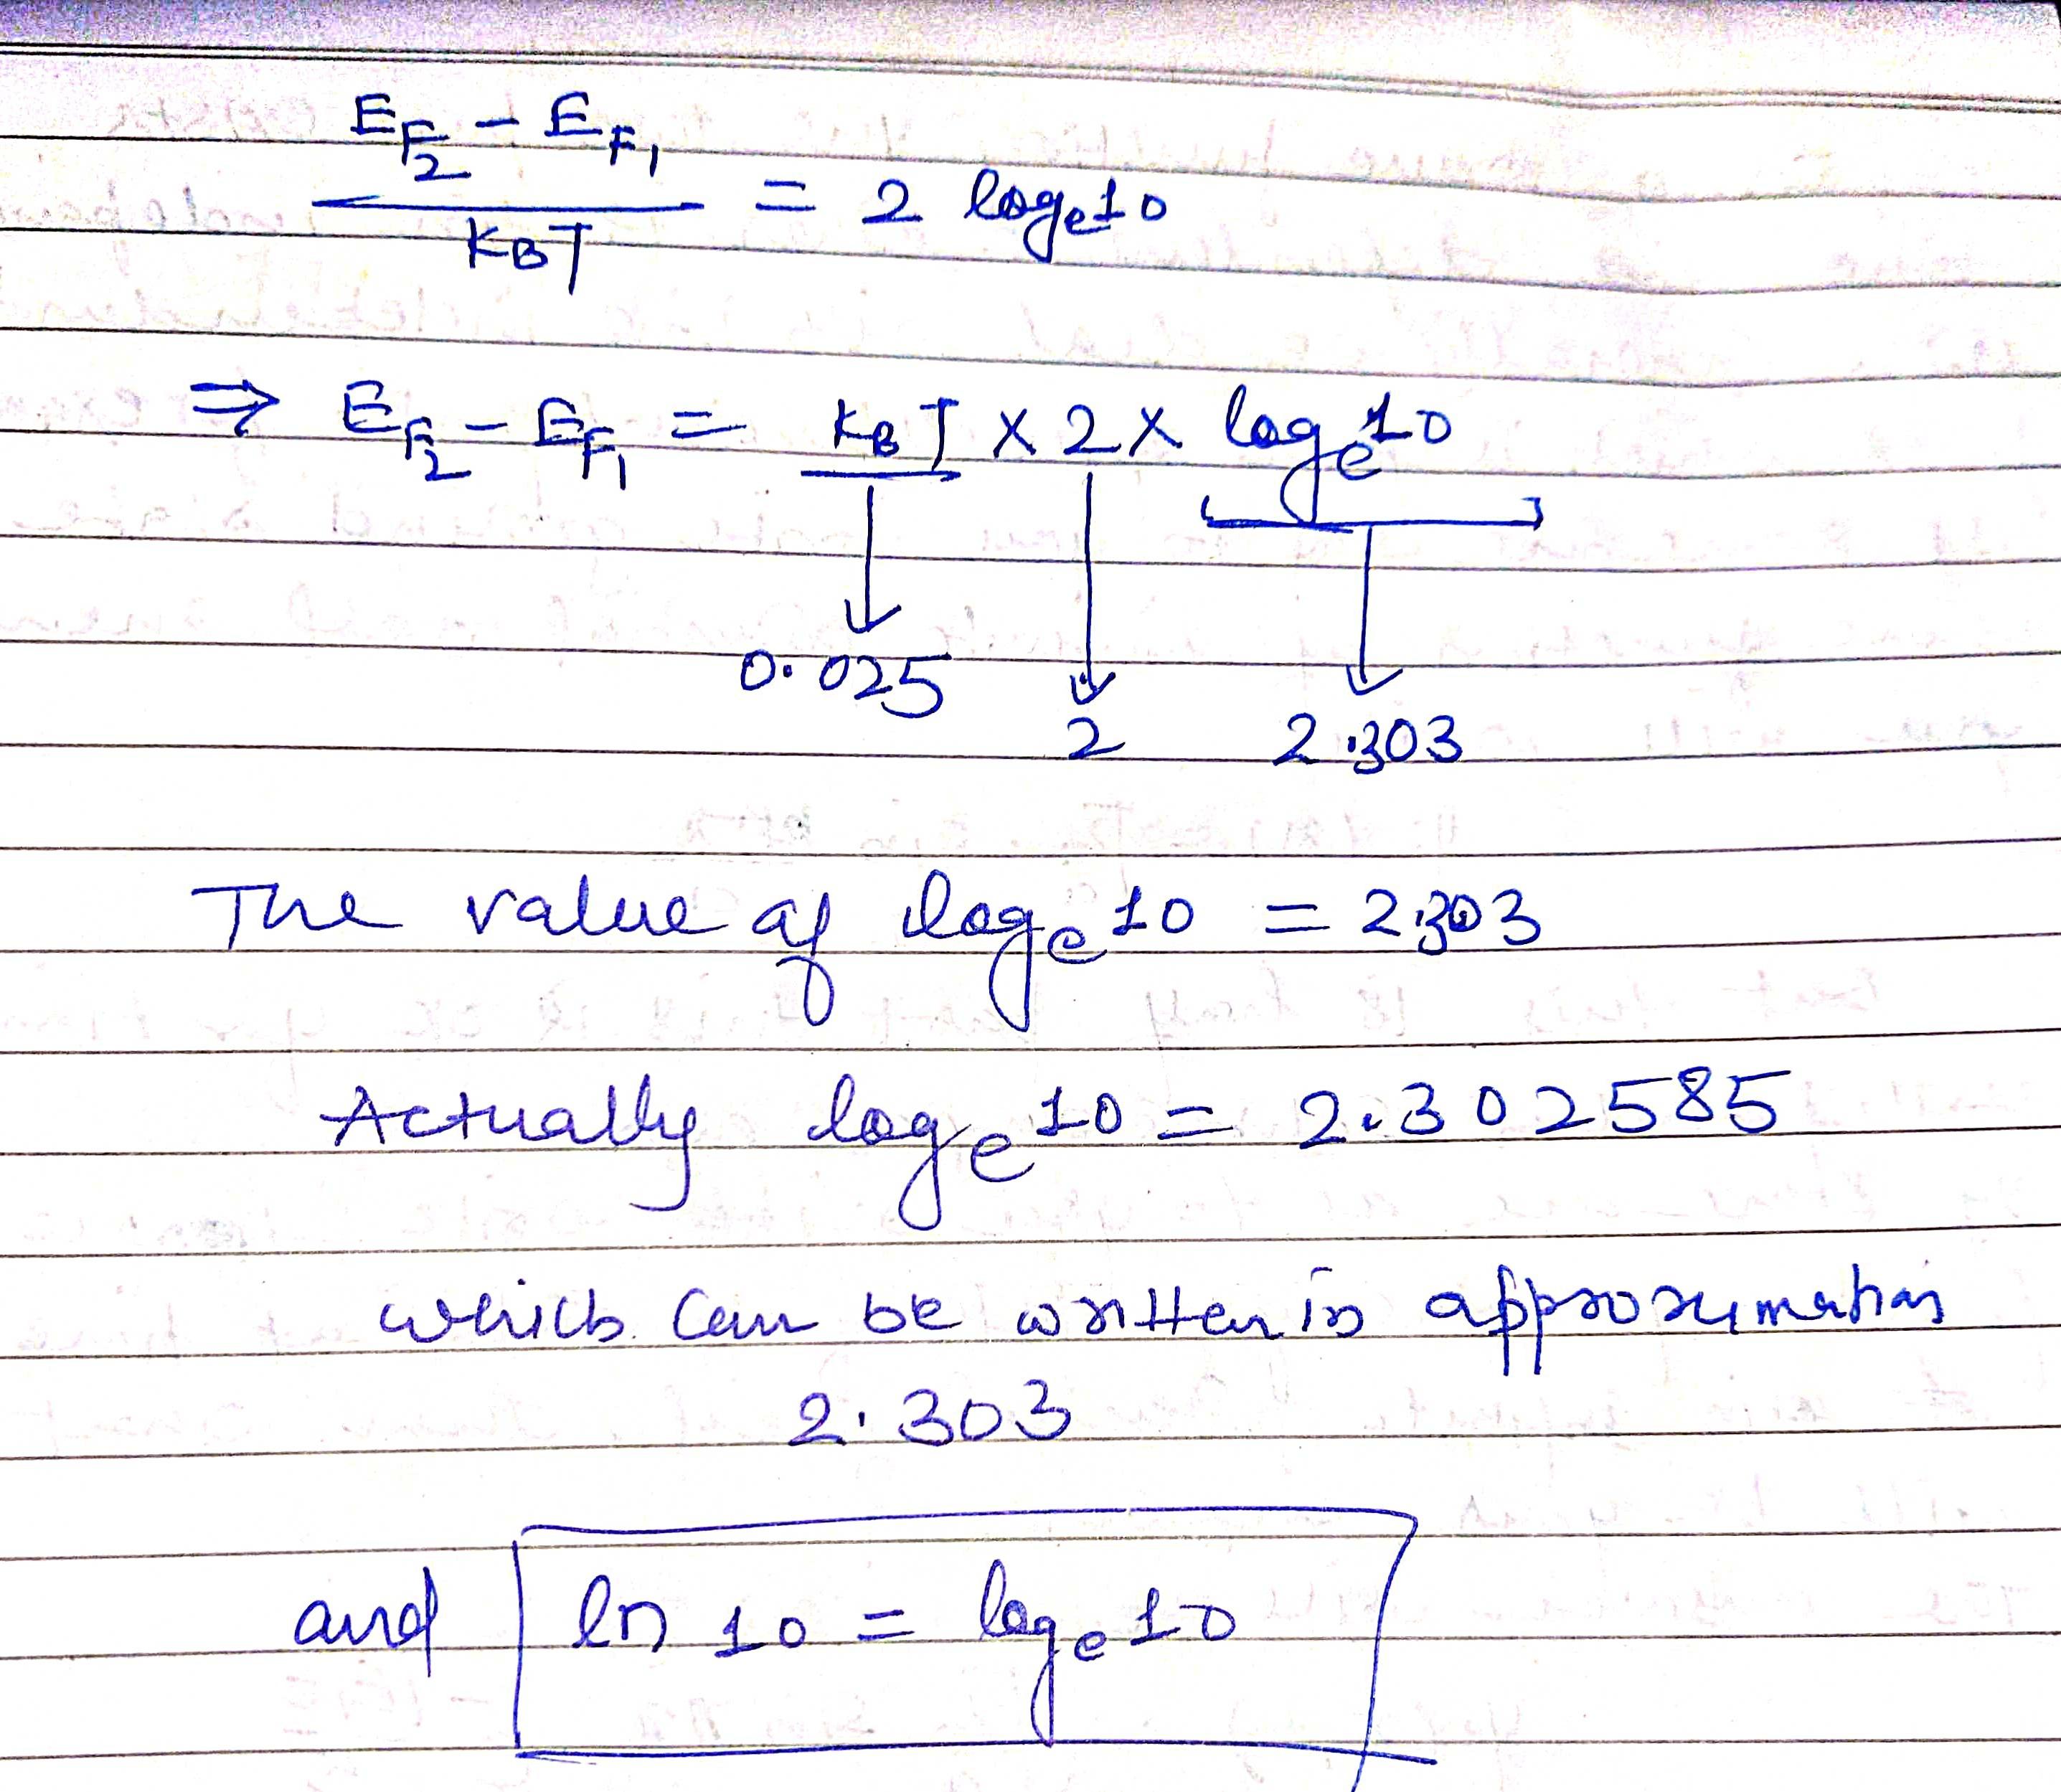 E_F2 - E_F1 / K_BT = 2 log_e 10
⇒ E_F2 - E_F1 = K_BT × 2 × log_e 10
0.025 2 2.303
The value of log_e 10 = 2.303
Actually log_e 10 = 2.302585
which can be written in approximation
2.303
and ln 10 = log_e 10